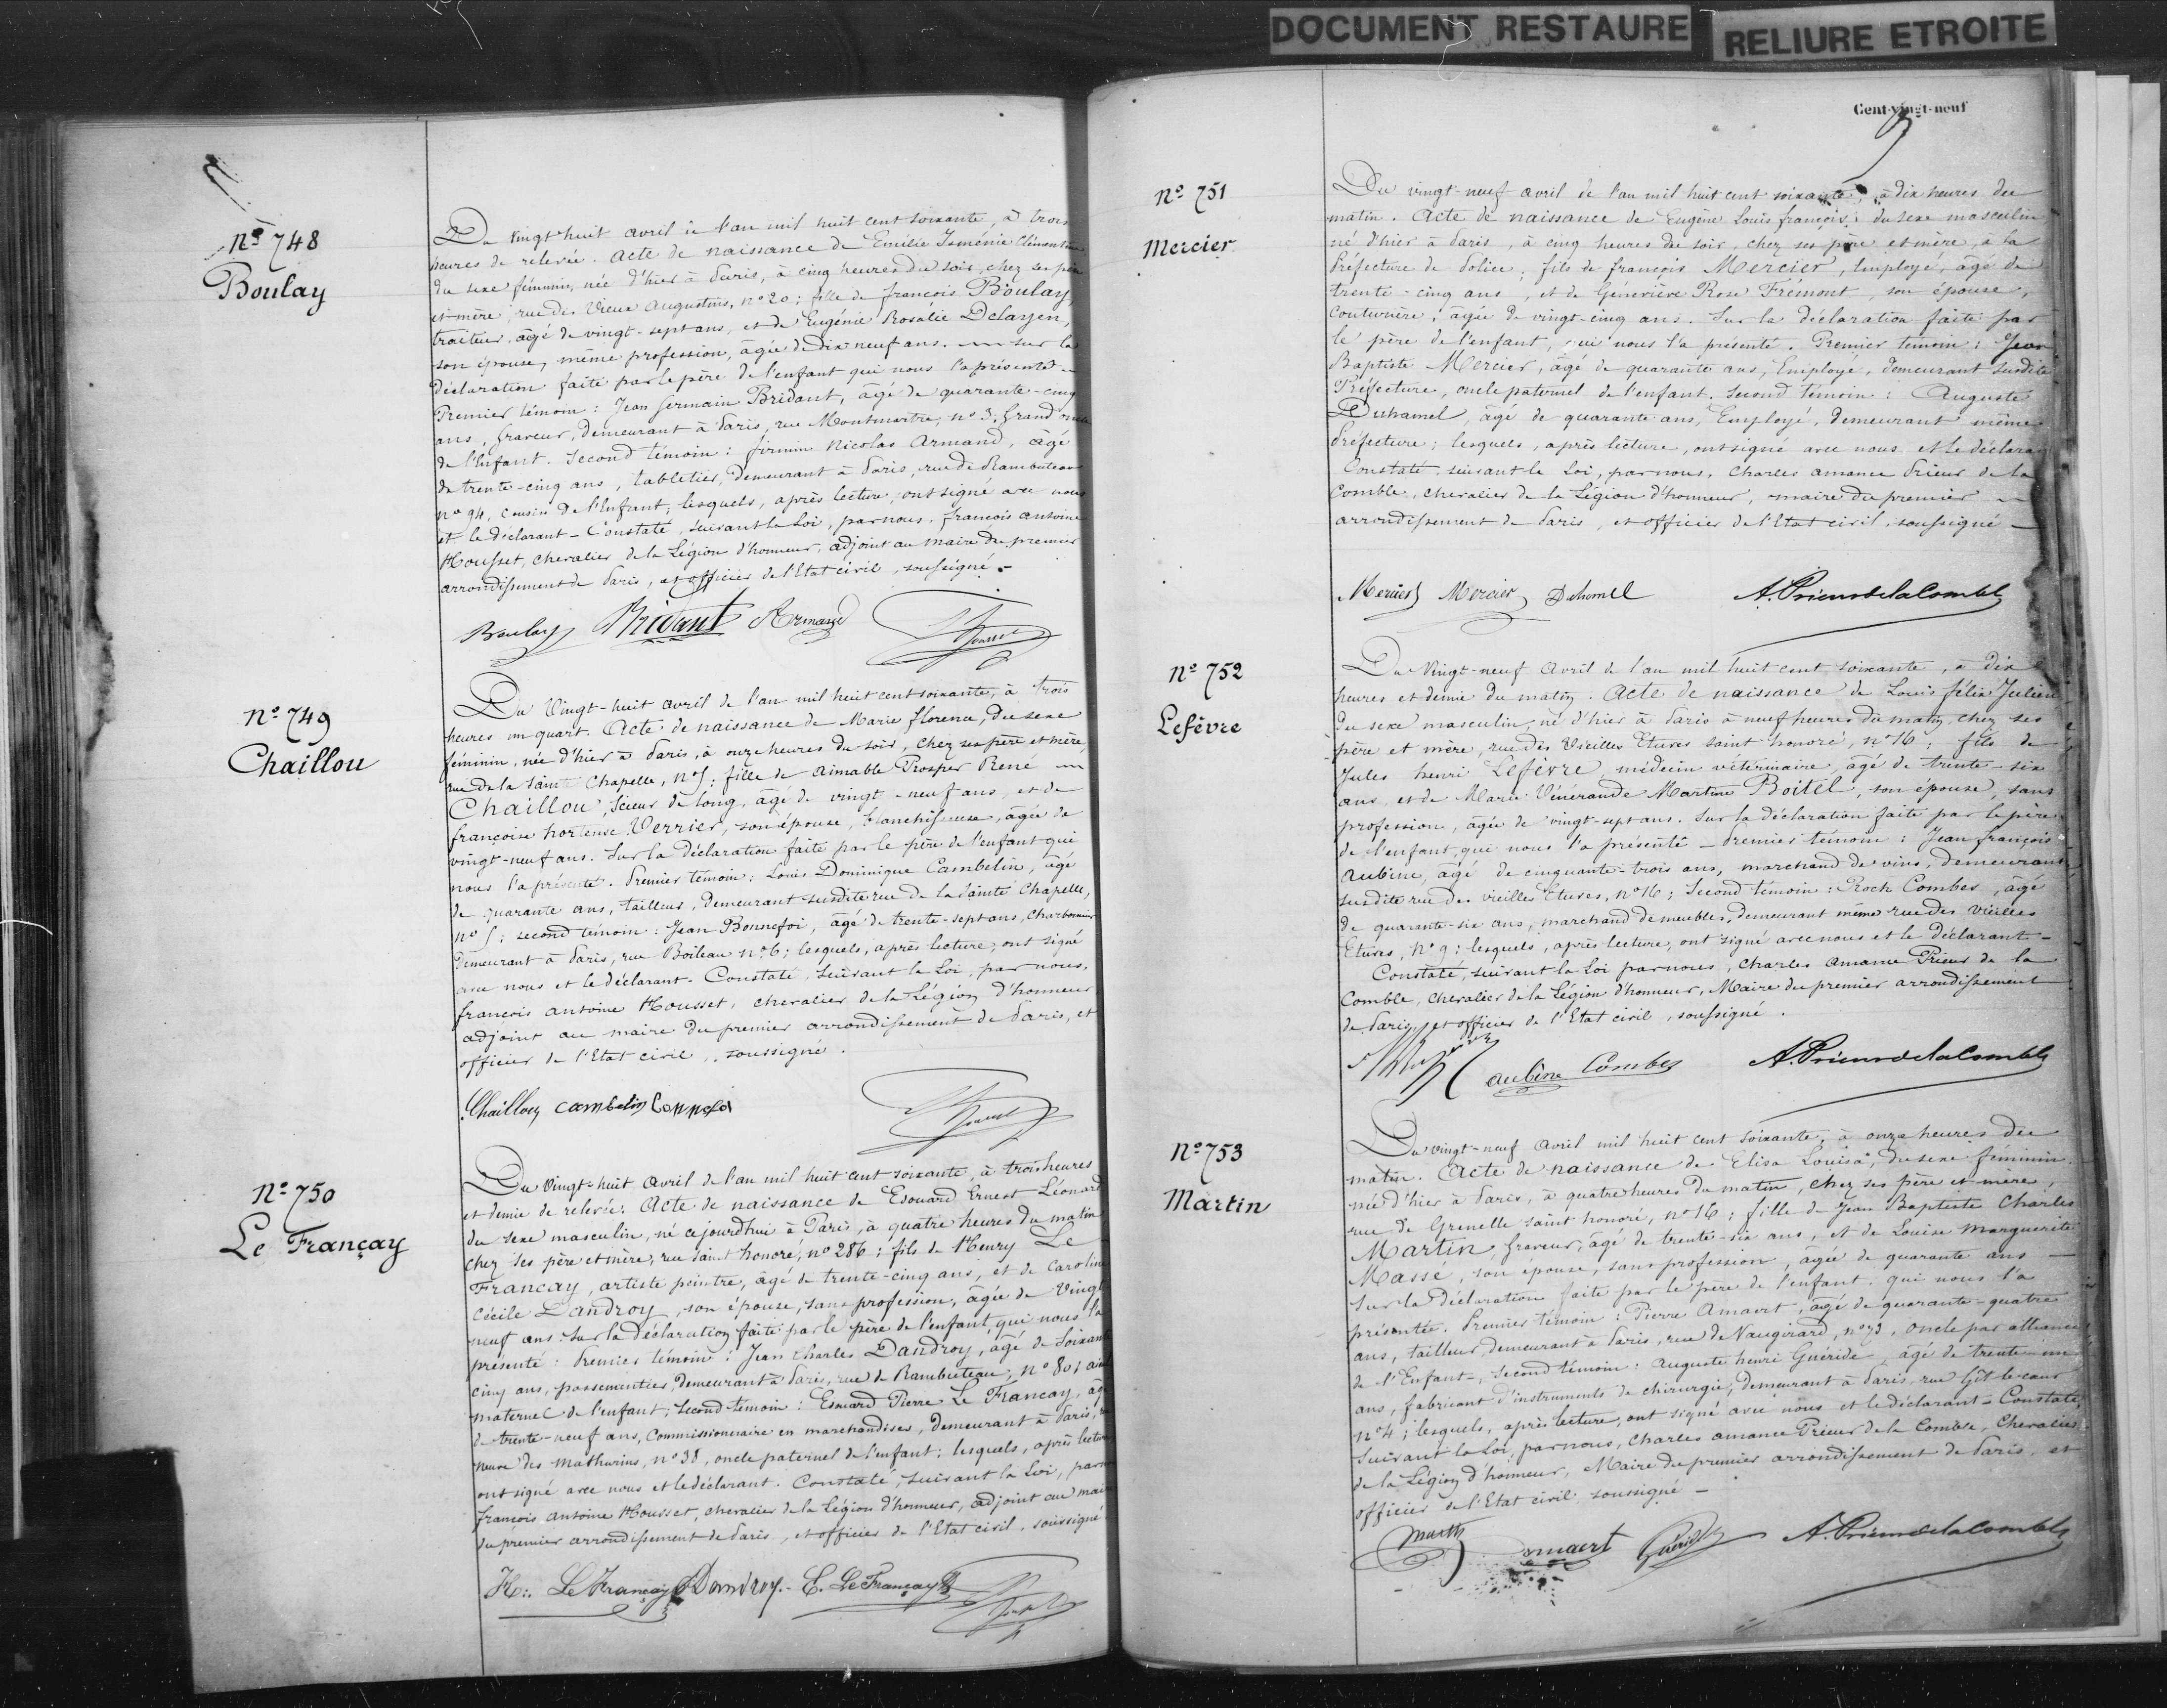 DOCUMENT RESTAURE
RELIURE ETROITE
Nº 748
Boulay
Du vingt huit avril de l'an mil huit cent soixante, à trois
heures de relevée. Acte de naissance de Emilie Isménie Clémentine
du sexe féminin, née d'hier à Paris, à cinq heures du soir, chez ses père
et mère, rue des Vieux Augustins, nº 20; fille de françois Boulay,
traiteur, âgé de vingt-sept ans, et de Eugénie Rosalie Delayen,
son épouse, même profession, âgée de dix neuf ans. sur la
déclaration faite par le père de l'enfant qui nous l'a présenté
Premier témoin: Jean Germain Bridant, âgé de quarante-cinq
ans, graveur, demeurant à Paris, rue Montmartre, nº 3, Grand oncle
de l'Enfant. Second témoin: firmin Nicolas Armand, âgé
de trente-cinq ans, tabletier, demeurant à Paris, rue de Rambuteau
nº 94, cousin de l'Enfant, lesquels, après lecture, ont signé avec nous
et le déclarant - Constaté, suivant la Loi, par nous, françois antoine
Housset, chevalier de la Légion d'honneur, adjoint au maire du premier
arrondissement de Paris, et officier de l'Etat civil, soussigné.-
Boulay Bridant Armand Housset
Nº 749
Chaillou
Du Vingt-huit avril de l'an mil huit cent soixante, à trois
heures un quart. Acte de naissance de Marie florence, du sexe
féminin, née d'hier à Paris, à onze heures du soir, chez ses père et mère,
rue de la Sainte Chapelle, nº 5; fille de Aimable Prosper René
Chaillou, scieur de long, âgé de vingt-neuf ans, et de
françoise hortense Verrier, son épouse, blanchisseuse, âgée de
vingt-neuf ans. Sur la déclaration faite par le père de l'enfant qui
nous l'a présenté. Premier témoin: Louis Dominique Cambelin, âgé
de quarante ans, tailleur, demeurant susdite rue de la Sainte Chapelle,
nº 5; second témoin: Jean Bonnefoi, âgé de trente-sept ans, charbonnier
demeurant à Paris, rue Boileau nº 6; lesquels, après lecture, ont signé
avec nous et le déclarant - Constaté, suivant la Loi, par nous,
françois antoine Housset, chevalier de la Légion d'honneur
adjoint au maire du premier arrondissement de Paris, et
officier de l'Etat civil, soussigné.
Chaillou cambelin Bonnefoi Housset
Nº 750
Le Françay
Du Vingt-huit avril de l'an mil huit cent soixante, à trois heures
et demie de relevée. Acte de naissance de Edouard Ernest Léonard
du sexe masculin, né cejourd'hui à Paris, à quatre heures du matin
chez ses père et mère, rue saint honoré, nº 286; fils de Henry Le
Francay, artiste peintre, âgé de trente-cinq ans, et de Caroline
Cécile Dandroy, son épouse, sans profession, âgée de Vingt
neuf ans. Sur la déclaration faite par le père de l'enfant, qui nous l'a
présenté: Premier témoin: Jean Charles Dandroy, âgé de Soixante
cinq ans, passementier, demeurant à Paris, rue de Rambuteau,
maternel de l'enfant; Second témoin: Edouard Pierre Le Francay, âgé
de trente-neuf ans, Commissionnaire en marchandises, demeurant à Paris, rue
neuve des Mathurins, nº 38, oncle paternel de l'enfant; lesquels, après lecture
ont signé avec nous et le déclarant. Constaté, suivant la Loi, par nous
françois antoine Housset, chevalier de la Légion d'honneur, adjoint au maire
du premier arrondissement de Paris, et officier de l'Etat civil, soussigné
H. Le Françay Dandroy E. Le Françay Housset
Cent-vingt-neuf
Nº 751
Mercier
Du vingt-neuf avril de l'an mil huit cent soixante, à dix heures du
matin. Acte de naissance de Eugène Louis françois, du sexe masculin
né d'hier à Paris, à cinq heures du soir, chez ses père et mère, à la
Préfecture de Police; fils de françois Mercier, Employé, âgé de
trente-cinq ans, et de Géneviève Rose Frémont, son épouse,
Couturière, âgée de vingt-cinq ans. Sur la déclaration faite par
le père de l'enfant, qui nous l'a présenté. Premier témoin: Jean
Baptiste Mercier, âgé de quarante ans, Employé, demeurant susdite
Préfecture, oncle paternel de l'enfant. Second témoin: Auguste
Duhamel, âgé de quarante ans, Employé, demeurant même
Préfecture; lesquels, après lecture, ont signé avec nous et le déclarant
Constaté, suivant la Loi, par nous, Charles amance Prieur de la
Comble, chevalier de la Légion d'honneur, maire du premier
arrondissement de Paris, et officier de l'Etat civil, soussigné -
Mercier Mercier Duhamel A. Prieur de la Comble
Nº 752
Lefèvre
Du Vingt-neuf Avril de l'an mil huit cent soixante, à dix
heures et demie du matin. Acte de naissance de Louis félix Julien
du sexe masculin, né d'hier à Paris à neuf heures du matin, chez ses
père et mère, rue des Vieilles Etuves saint honoré, nº 16; fils de
Jules henri Lefèvre médecin vétérinaire, âgé de trente-six
ans, et de Marie Vénérande Martine Boitel, son épouse, sans
profession, âgée de vingt-sept ans. Sur la déclaration faite par le père
de l'enfant, qui nous l'a présenté - Premier témoin: Jean françois
Aubine, âgé de cinquante-trois ans, marchand de vins, demeurant
susdite rue des vieilles Etuves, nº 16; Second témoin: Roch Combes, âgé
de quarante-six ans, marchand de meubles, demeurant même rue des vieilles
Etuves, nº 9; lesquels, après lecture, ont signé avec nous et le déclarant -
Constaté, suivant la Loi par nous, Charles amance Prieur de la
Comble, chevalier de la Légion d'honneur, Maire du premier arrondissement
de Paris, et officier de l'Etat civil, soussigné.
aubine Combes A. Prieur de la Comble
Nº 753
Martin
Du vingt-neuf Avril mil huit cent soixante, à onze heures du
matin. Acte de naissance de Elisa Louisa, du sexe féminin
née d'hier à Paris, à quatre heures du matin, chez ses père et mère,
rue de Grenelle saint honoré, nº 16; fille de Jean Baptiste Charles
Martin, graveur, âgé de trente-six ans, et de Louise Marguerite
Massé, son épouse, sans profession, âgée de quarante ans -
Sur la déclaration faite par le père de l'enfant, qui nous l'a
présentée. Premier témoin: Pierre Amaert, âgé de quarante-quatre
ans, tailleur, demeurant à Paris, rue de Vaugirard, oncle par alliance
de l'Enfant, Second témoin: Auguste henri Guéride, âgé de trente-un
ans, fabricant d'instruments de chirurgie, demeurant à Paris, rue Gît-le-cœur
nº 4; lesquels, après lecture, ont signé avec nous et le déclarant - Constaté,
suivant la Loi, par nous, Charles amance Prieur de la Comble, Chevalier
de la Légion d'honneur, Maire du premier arrondissement de Paris, et
officier de l'Etat civil soussigné -
Martin amaert Guéride A. Prieur de la Comble